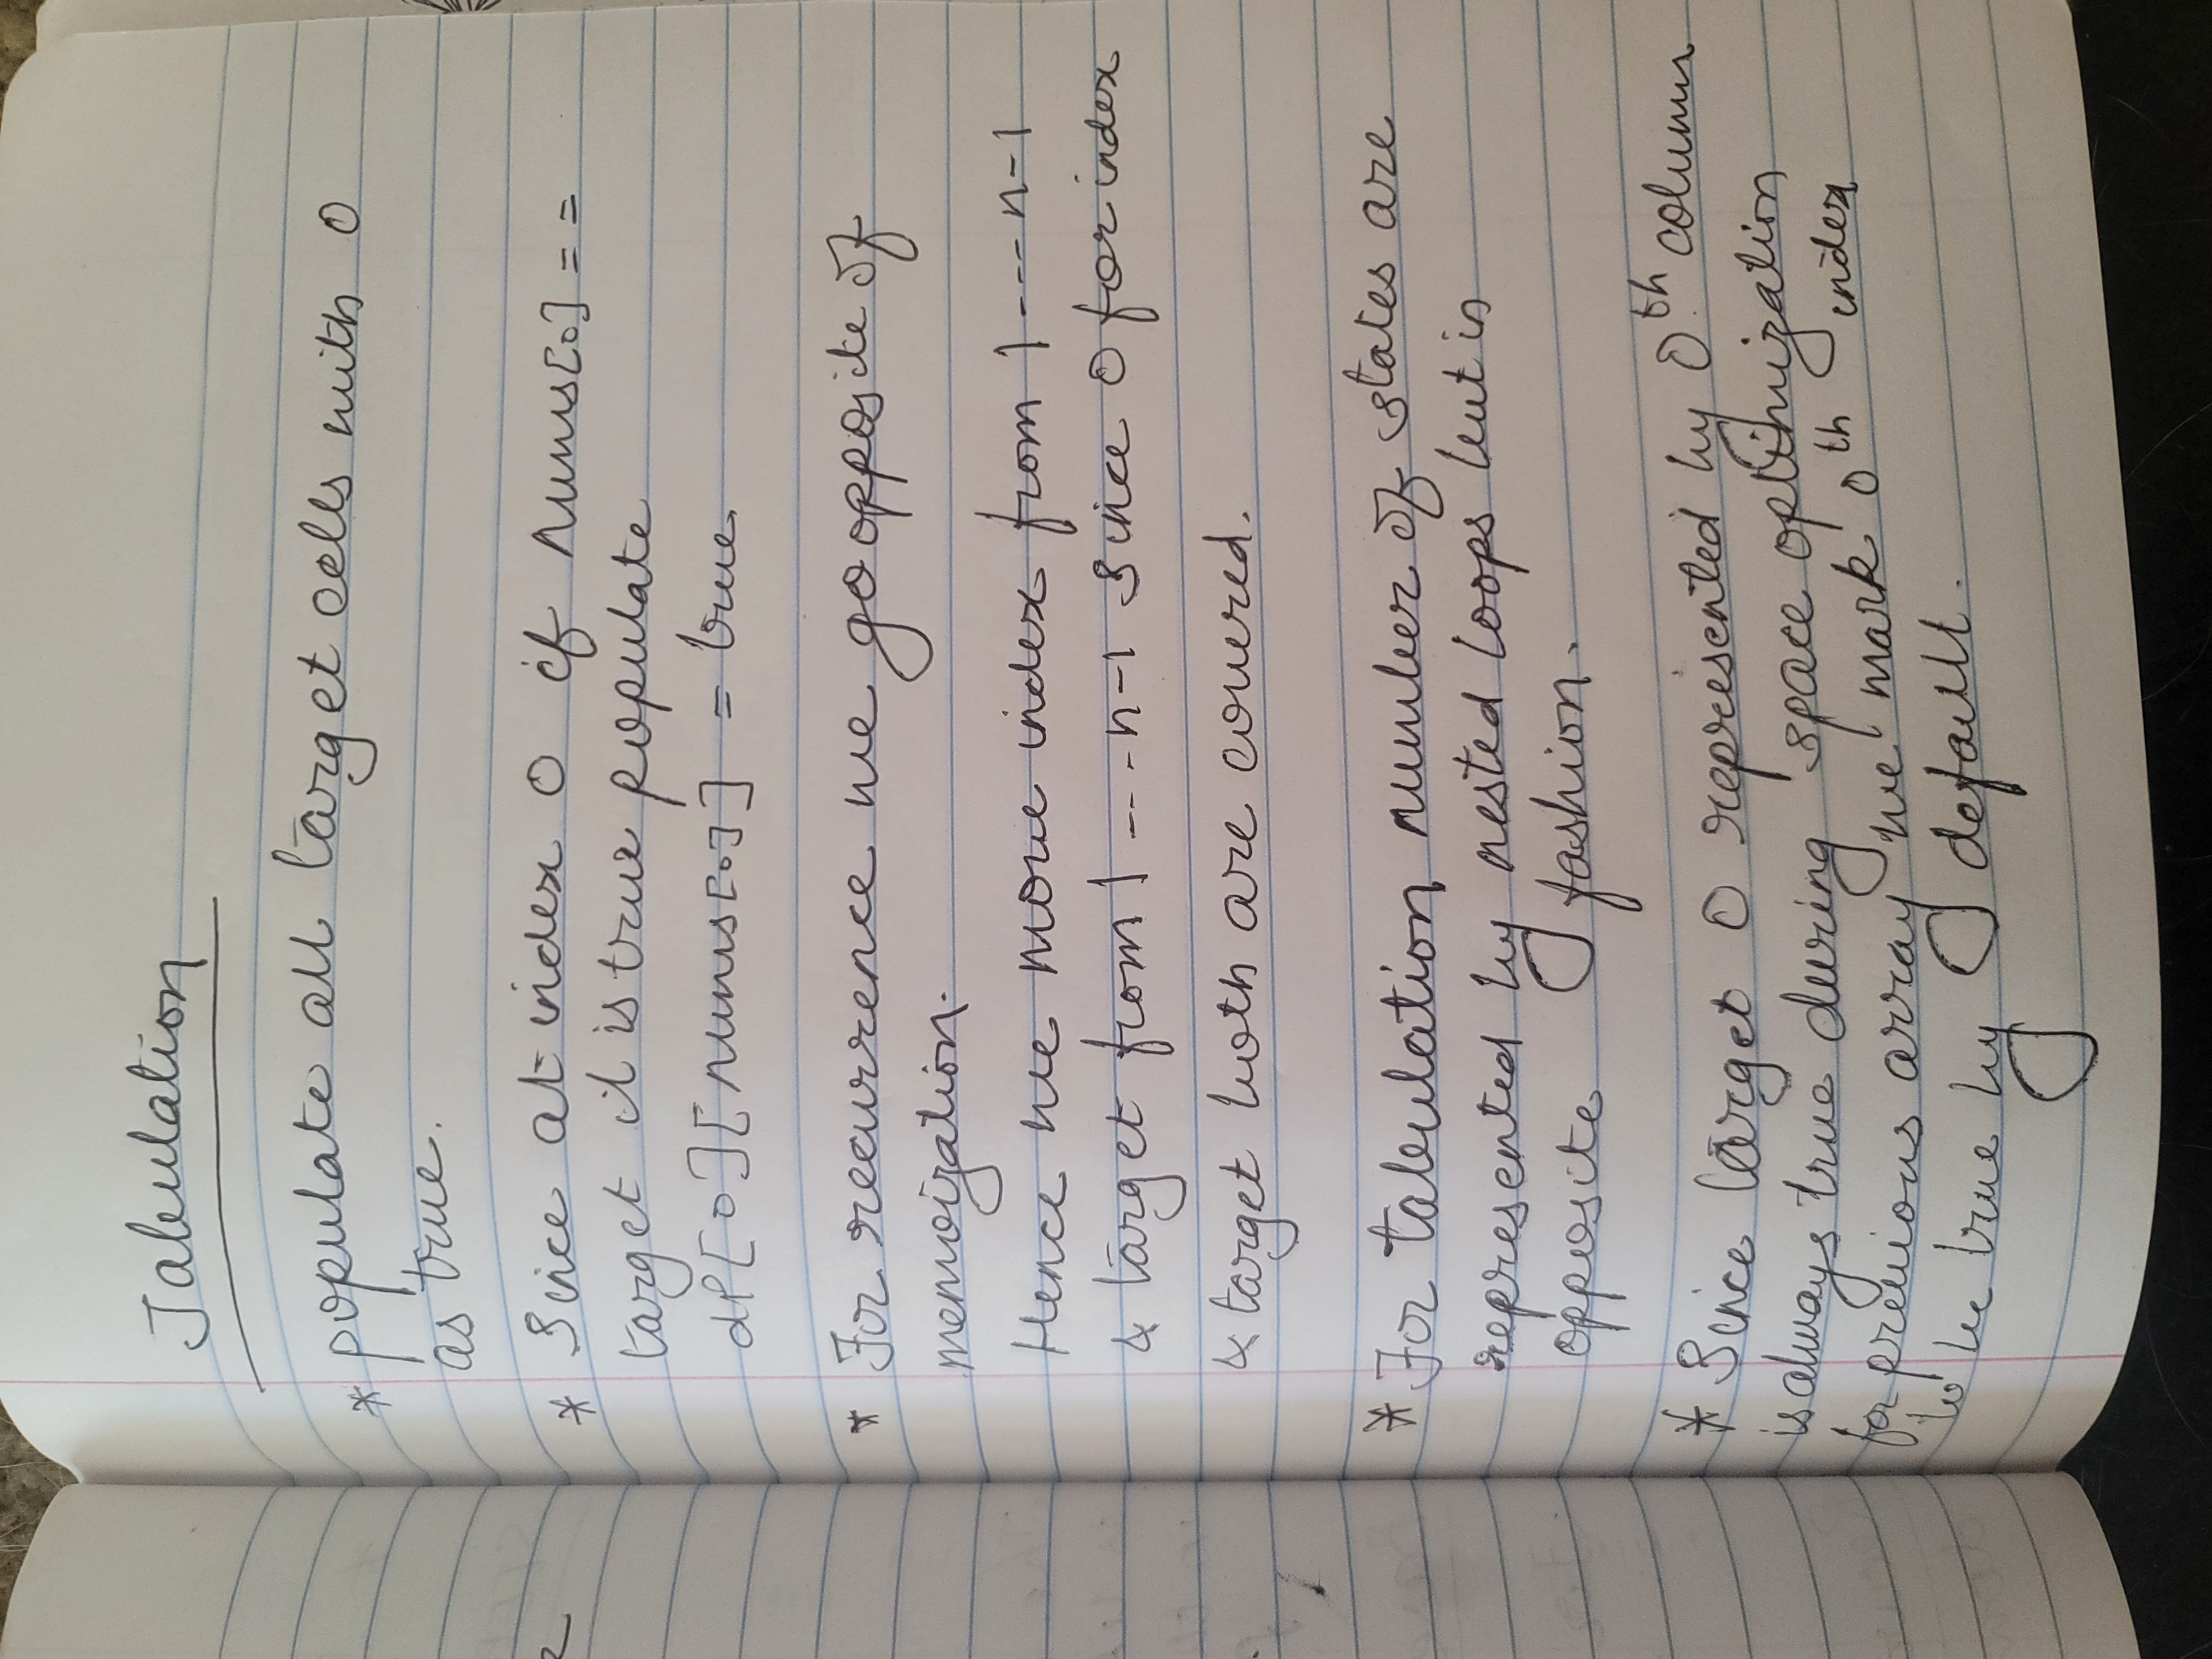 Tabulation
* populate all target cells with 0
as true.
* Since at index 0 if nums[0] = =
target it is true populate
dp[0][nums[0]] = true
* For recurrence we go opposite of
memoization.
Hence we move index from 1 --- n-1
& target from 1 --- n-1 since 0 for index
& target both are covered.
* For tabulation number of states are
represented by nested loops but in
opposite fashion.
* Since target 0 represented by 0th column
is always true during space optimization
for previous array we mark 0th index
to be true by default.